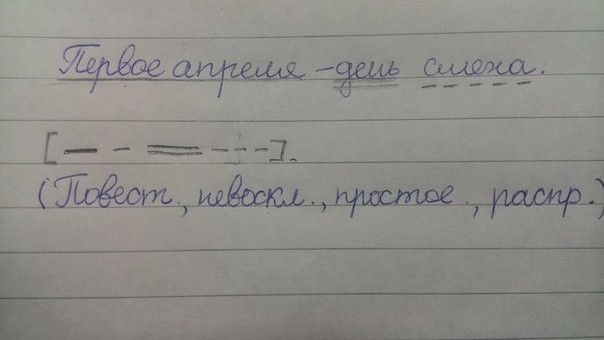 Первое апреля – день смеха.
[— – = ---].
(Повест., невоскл., простое, распр.)